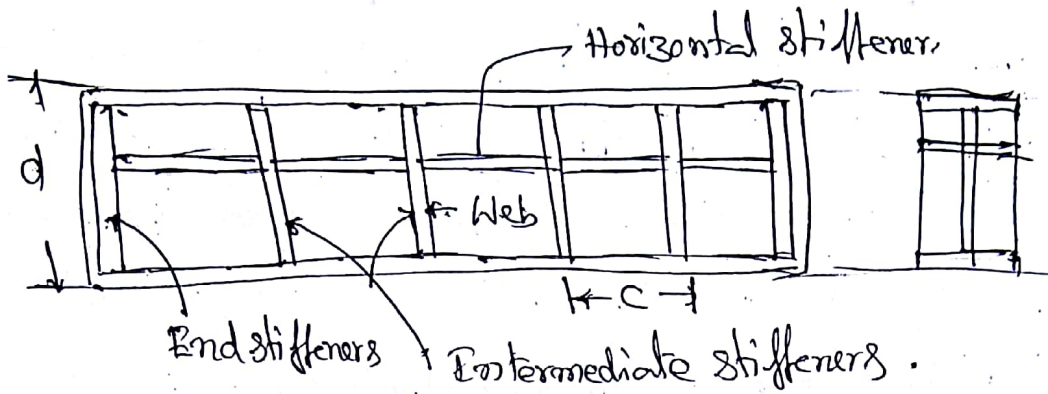 Horizontal stiffener.
d
Web
C
End stiffeners
Intermediate stiffeners.